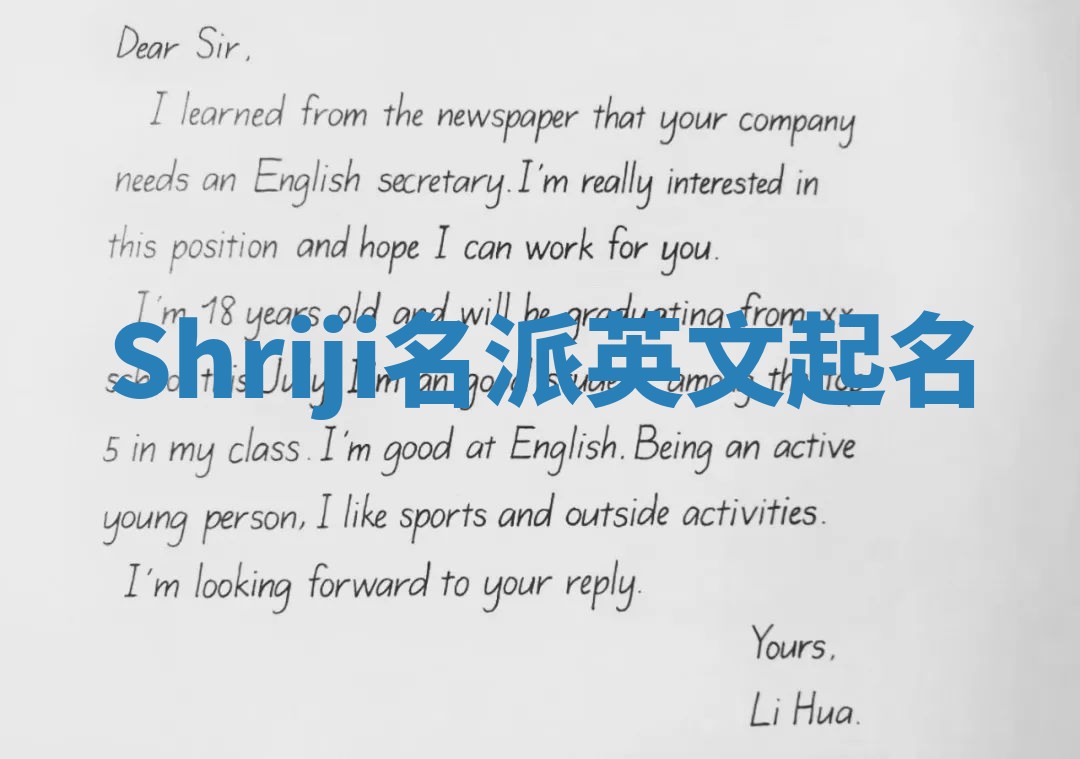 Dear Sir,
I learned from the newspaper that your company
needs an English secretary. I'm really interested in
this position and hope I can work for you.
I'm 18 years old and will be graduating from xx
Shriji名派英文起名
school this July. I'm an good student among the top
5 in my class. I'm good at English. Being an active
young person, I like sports and outside activities.
I'm looking forward to your reply.
Yours,
Li Hua.